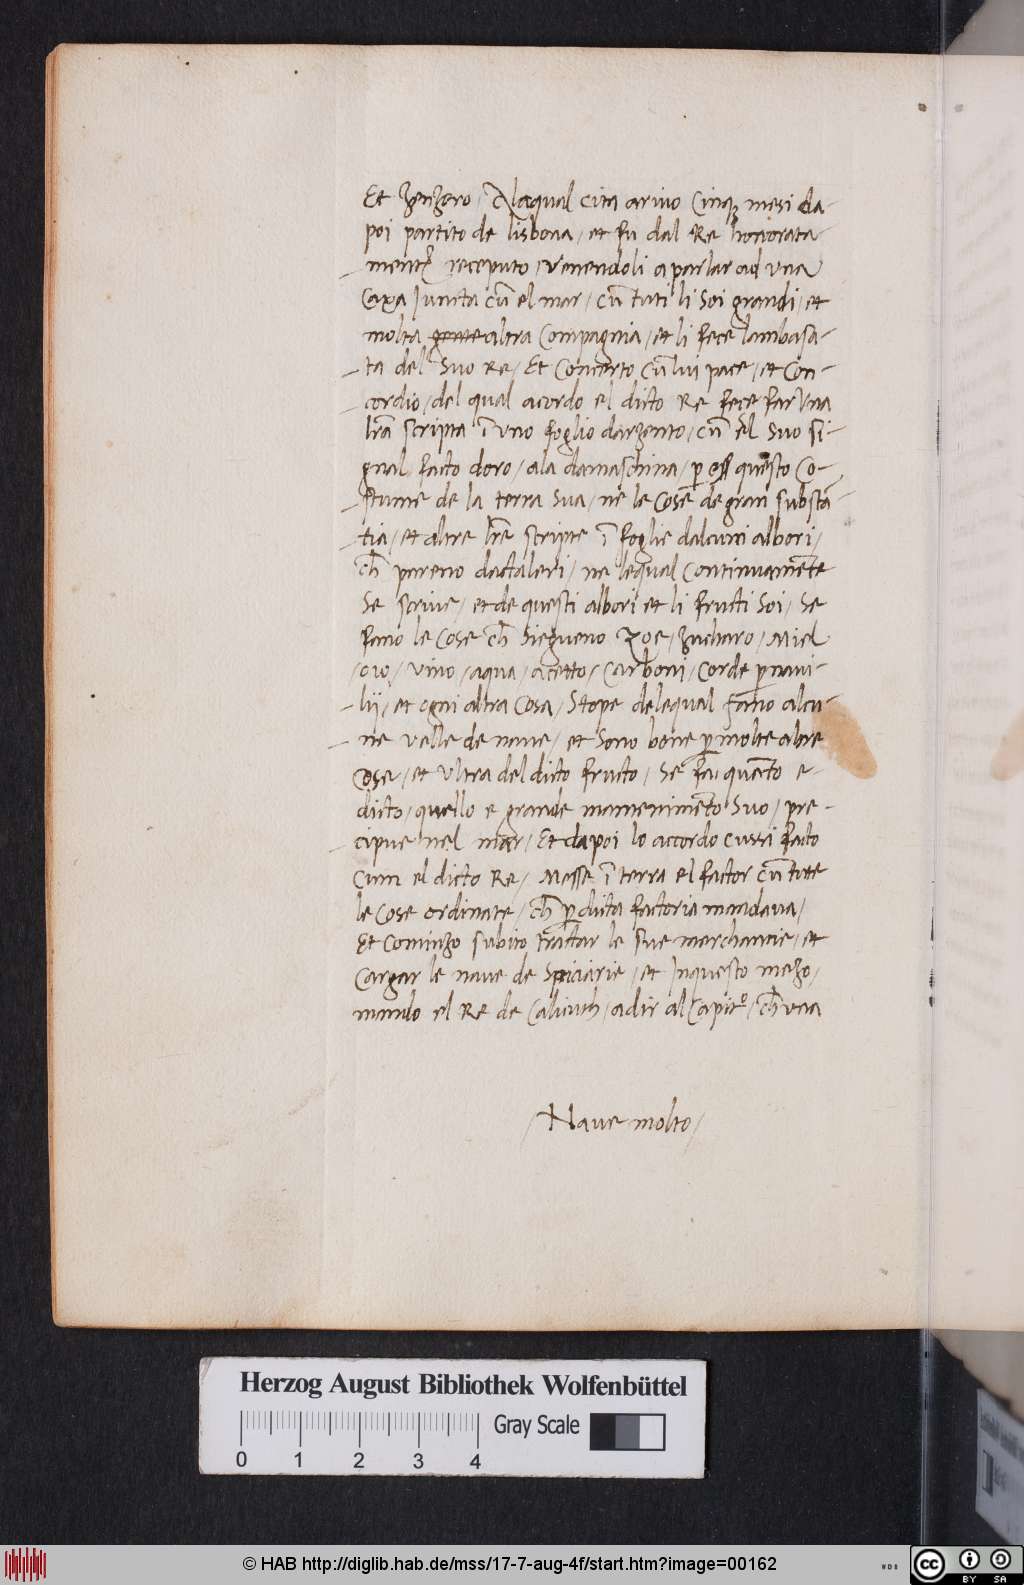 Et zenzero / Alaqual cita arivo Cinq3 mesi da-
poi partito de lisbona / et fu dal Re honorata
mente receputo / Venendoli a parlar ad una
Caxa Juncta cū el mar / cū tuti li Soi grandi / et
molta gente altra Compagnia / et li fece lambasa-
ta del Suo Re / Et Concerto cū lui pace / et Con-
cordio / del qual acordo el dicto Re fece far Una
lrā scripta ī uno foglio dargento / cū el Suo si-
gnal facto doro / ala damaschina / p esser questo Co-
stume de la terra Sua / ne le Cose de gran substā-
tia / et altre lrē scripte ī foglie dalcuni albori /
ch pareno dactaleri / ne lequal Continuamēte
Se scrive / et de questi albori et li fructi Soi / Se
fano le Cose ch Siegueno zoe / zucharo / Miel
/ oio / vino / aqua / acetto / Carboni / Corde p navi-
lij / et ogni altra Cosa / Stope delequal fano alcu-
ne velle de nave / et Sono bone p molte altre
Cose / et Ultra del dicto fructo / Se fa quanto e
dicto / quello e grande mantenimēto Suo / pre-
cipue nel mar / Et dapoi lo accordo cussi facto
Cum el dicto Re / Messe ī terra el factor cū tute
le Cose ordinate / ch p dicta factoria mandava /
Et Cominzo subito tractar le sue merchantie / et
Cargar le nave de Speciarie / et Inquesto mezo /
mando el Re de Calicuth / a dir al Capitº / ch una
/ Nave molto /
Herzog August Bibliothek Wolfenbüttel
Gray Scale
0 1 2 3 4
© HAB http://diglib.hab.de/mss/17-7-aug-4f/start.htm?image=00162
WDB
cc BY SA